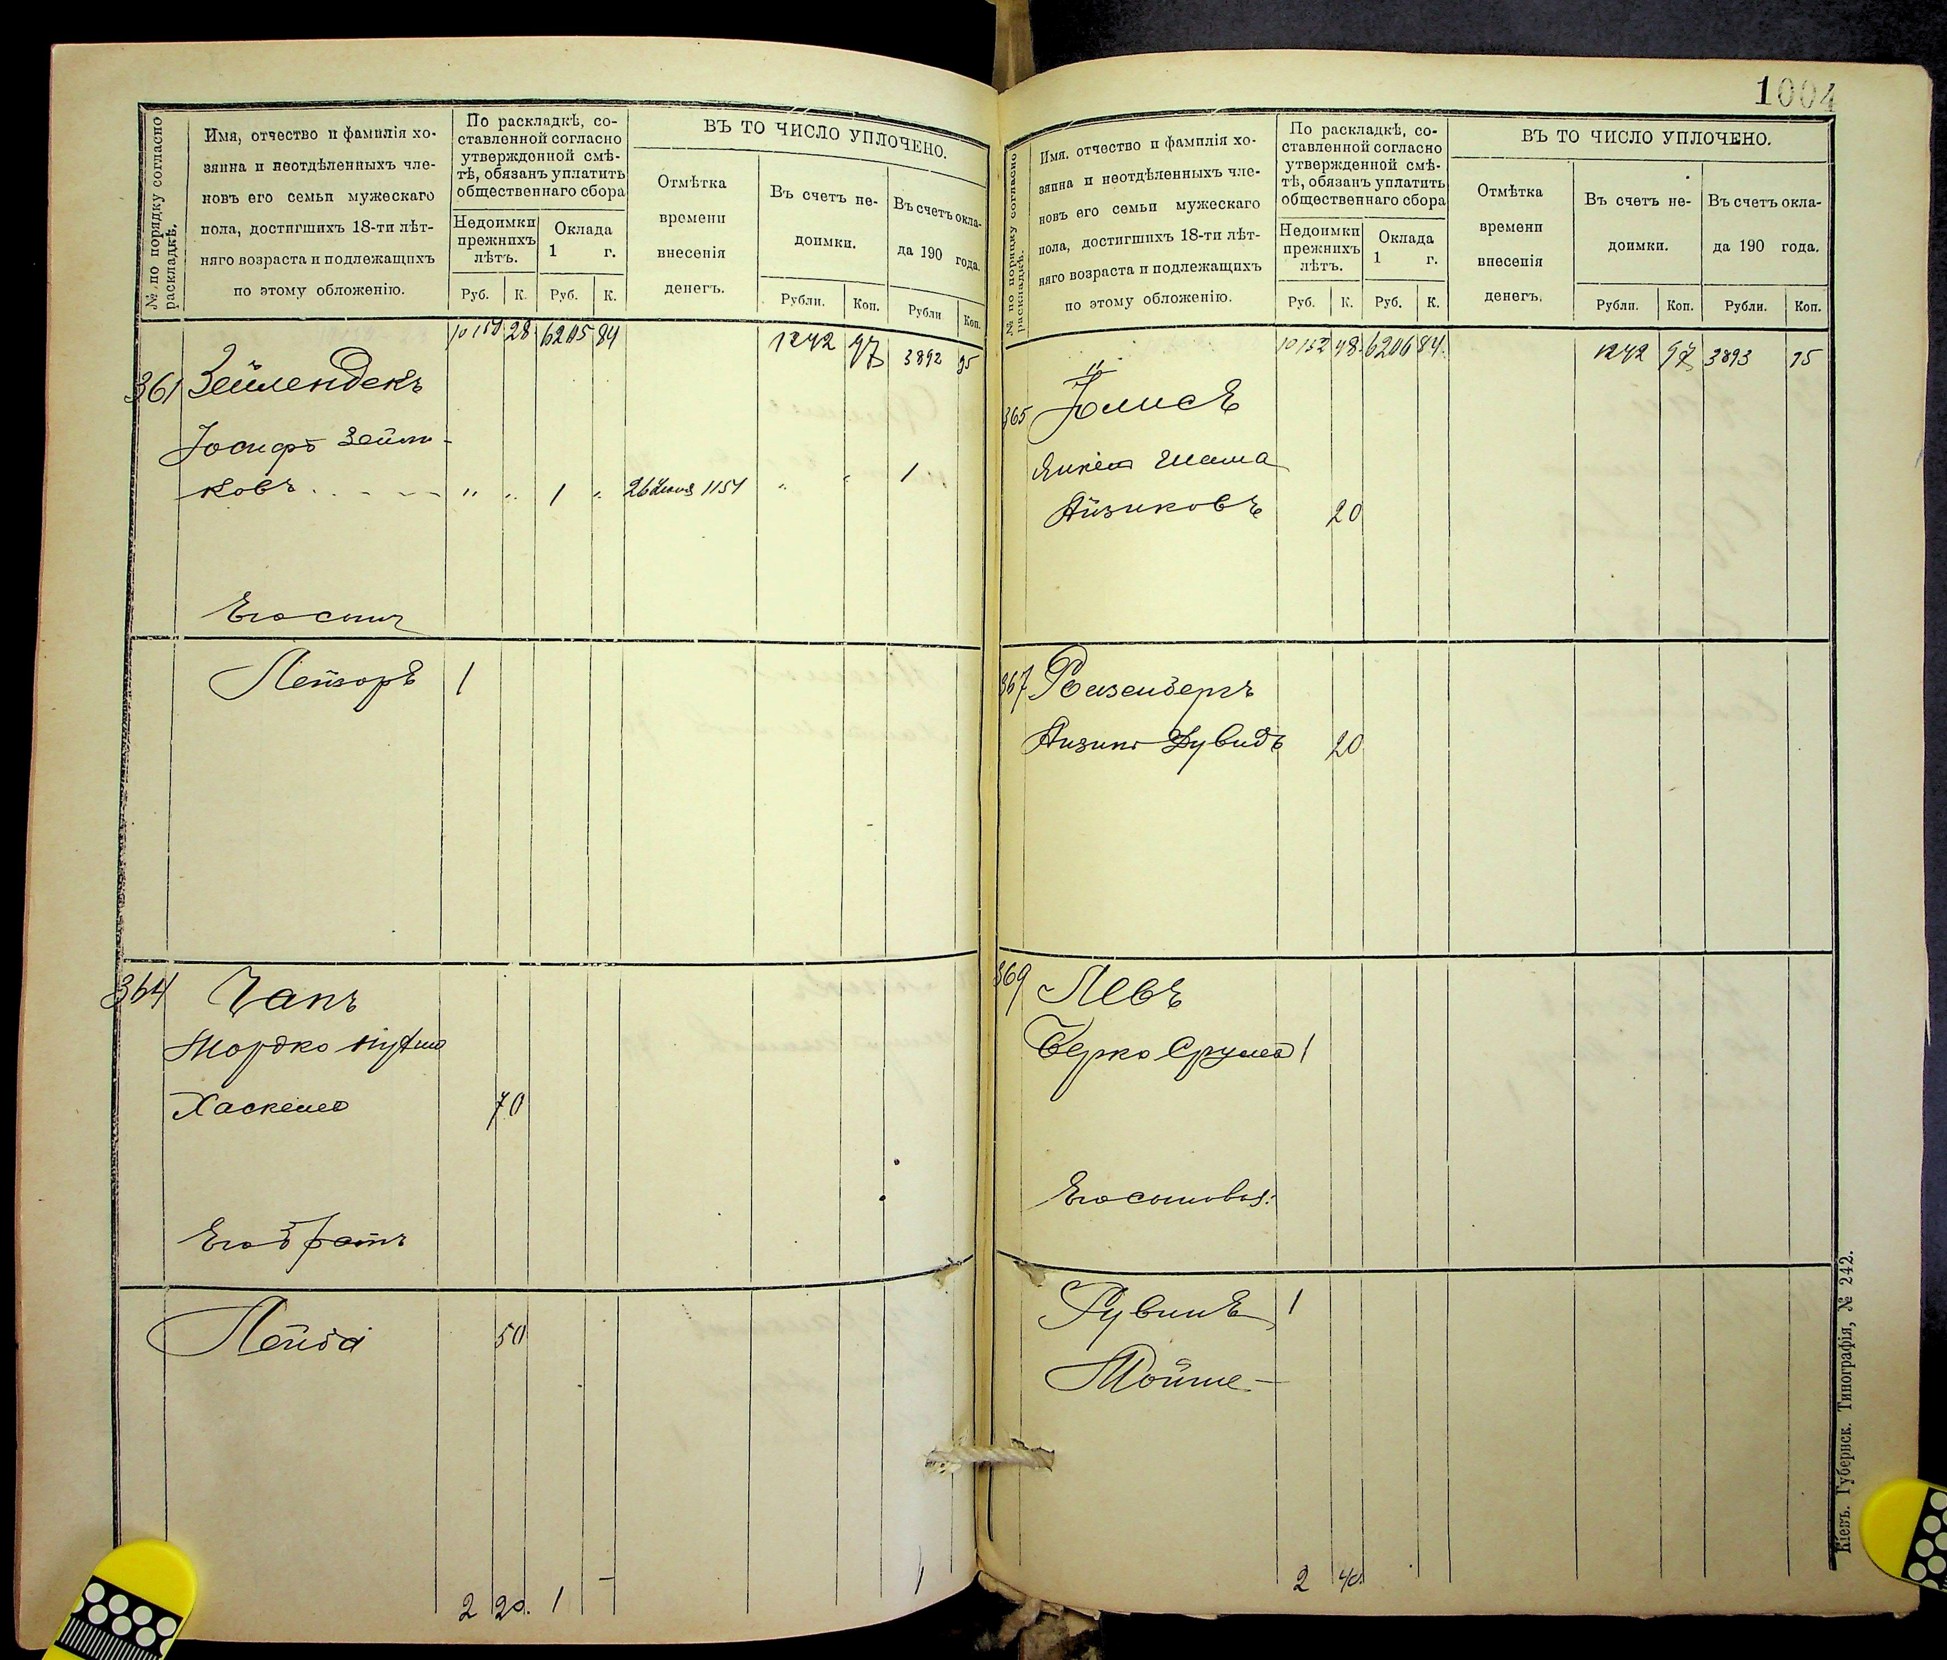 № по порядку согласно раскладкѣ.
Имя, отчество и фамилія хо-
зяина и неотдѣленныхъ чле-
новъ его семьи мужескаго
пола, достигшихъ 18-ти лѣт-
няго возраста и подлежащихъ
по этому обложенію.
По раскладкѣ, со-
ставленной согласно
утвержденной смѣ-
тѣ, обязанъ уплатить
общественнаго сбора
Недоимки
прежнихъ
лѣтъ.
Оклада
1 г.
Руб. К. Руб. К.
ВЪ ТО ЧИСЛО УПЛОЧЕНО.
Отмѣтка
времени
внесенія
денегъ.
Въ счетъ не-
доимки.
Въ счетъ окла-
да 190 года.
Рубли. Коп. Рубли Коп.
28 6205 84 1242 97 3892 95
361 Зейлендекъ
Іосифъ Зейли-
ковъ " " 1 " 26 1151 " " 1
Его сынъ
Лейзоръ 1
364 Чапъ
Мордко
Хаскелев 70
Его братъ
Лейба 50
2 20. 1 - 1
1004
№ по порядку согласно раскладкѣ.
Имя, отчество и фамилія хо-
зяина и неотдѣленныхъ чле-
новъ его семьи мужескаго
пола, достигшихъ 18-ти лѣт-
няго возраста и подлежащихъ
по этому обложенію.
По раскладкѣ, со-
ставленной согласно
утвержденной смѣ-
тѣ, обязанъ уплатить
общественнаго сбора
Недоимки
прежнихъ
лѣтъ.
Оклада
1 г.
Руб. К. Руб. К.
ВЪ ТО ЧИСЛО УПЛОЧЕНО.
Отмѣтка
времени
внесенія
денегъ.
Въ счетъ не-
доимки.
Въ счетъ окла-
да 190 года.
Рубли. Коп. Рубли. Коп.
10152 48 6206 84 1242 97 3893 95
365
Шама
Айзиковъ 20
367 Розенбергъ
Айзикъ Дувидъ 20
369 Левъ
Берко Срулев 1
Его сыновья:
Рувинъ 1
Мойше -
2 40
Кіевъ. Губернск. Типографія, № 242.